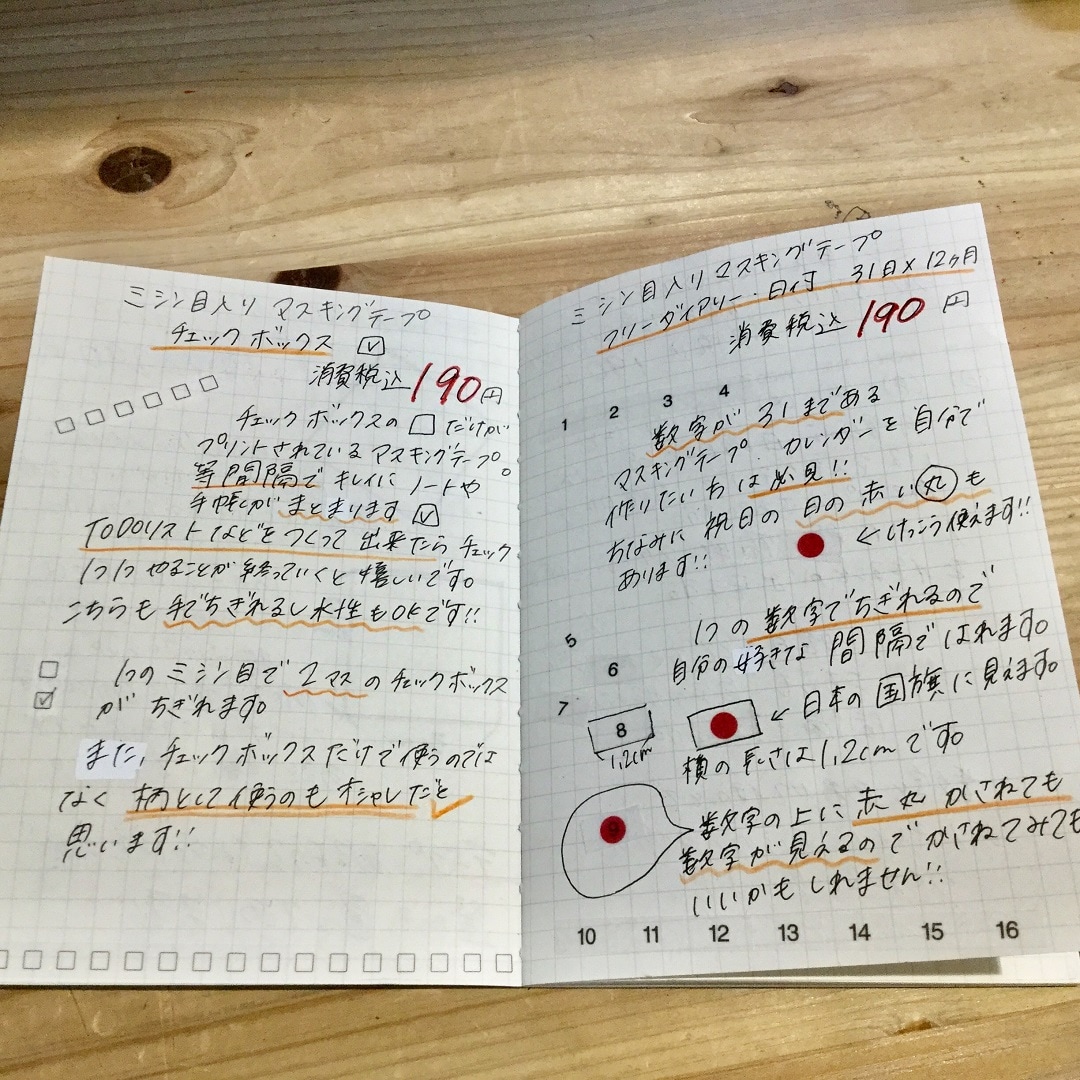 ミシン目入り マスキングテープ
チェックボックス ☑
消費税込 190円
チェックボックスの □ だけが
プリントされている マスキングテープ。
等間隔で キレイに ノートや
手帳が まとまります ☑
TODOリストなどをつくって 出来たら チェック
1つ1つ やることが 終っていくと 嬉しいです。
こちらも 手でちぎれるし 水性もOKです!!
1つの ミシン目で 2マス のチェックボックス
が ちぎれます。
また、チェックボックスだけで使うのでは
なく 柄として使うのもオシャレだと
思います!!
ミシン目入り マスキングテープ
フリーダイアリー・日付 31日×12ヶ月
消費税込 190円
1 2 3 4
数字が 31まである
マスキングテープ。カレンダーを自分で
作りたい方は必見!!
ちなみに 祝日の 日の赤い丸も
あります!! ←けっこう使えます!!
1つの 数字でちぎれるので
自分の好きな 間隔ではれます。
5
6
7
8
1.2cm
← 日本の国旗に見えます。
横の長さは1.2cmです。
9
数字の上に 赤丸 かさねても
数字が見えるのでかさねてみても
いいかもしれません!!
10 11 12 13 14 15 16